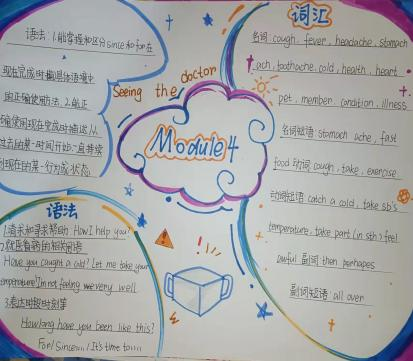 语法：1.能掌握和区分since和for在
现在完成时撤具体语境中
的正确使用方法. 2.能正
确使用现在完成时描述从
过去的某一时间开始一直持续
到现在的某一行为或状态.
Seeing the doctor
Module 4
词汇
名词 cough, fever, headache, stomach
ach, toothache. cold, health, heart
pet, member condition, illness
名词短语 stomach ache, fast
food 动词 cough, take, exercise
动词短语 catch a cold, take sb's
temperature, take part (in sth) feel
awful 副词 then perhapes
副词短语 all over
语法
1.请求和寻求帮助 How I help you?
2.就医看病的相关用语
Have you caught a cold? Let me take your
temperature I'm not feeling very well
3.表达时段时刻等
How long have you been like this?
For/Since... It's time to....